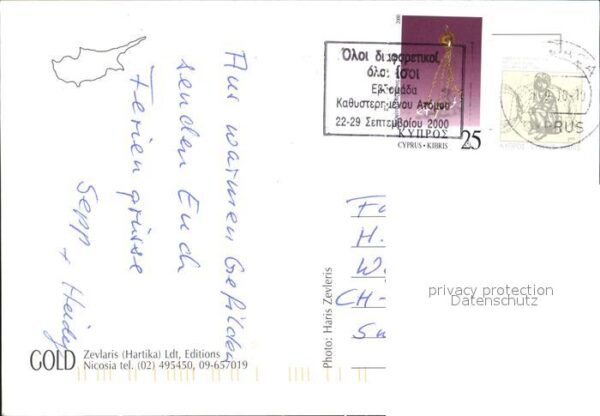 Aus warmen Gefilden
senden Euch
Feriengrüsse
Sepp + Heidy
GOLD
Zevlaris (Hartika) Ldt, Editions
Nicosia tel. (02) 495450, 09-657019
Photo: Haris Zevleris
2000
Όλοι διαφορετικοί,
όλοι ίσοι
Εβδομάδα
Καθυστερημένου Ατόμου
22-29 Σεπτεμβρίου 2000
ΚΥΠΡΟΣ
CYPRUS • KIBRIS 25
RUS
H.
CH-
privacy protection
Datenschutz